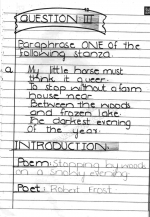 QUESTION: III
Paraphrase ONE of the
following stanza
a. My little horse must
think it queer
To stop without a farm
house near
Between the woods
and frozen lake
The darkest evening
of the year
INTRODUCTION:
Poem: Stopping by woods
on a snowy evening
Poet: Robert Frost